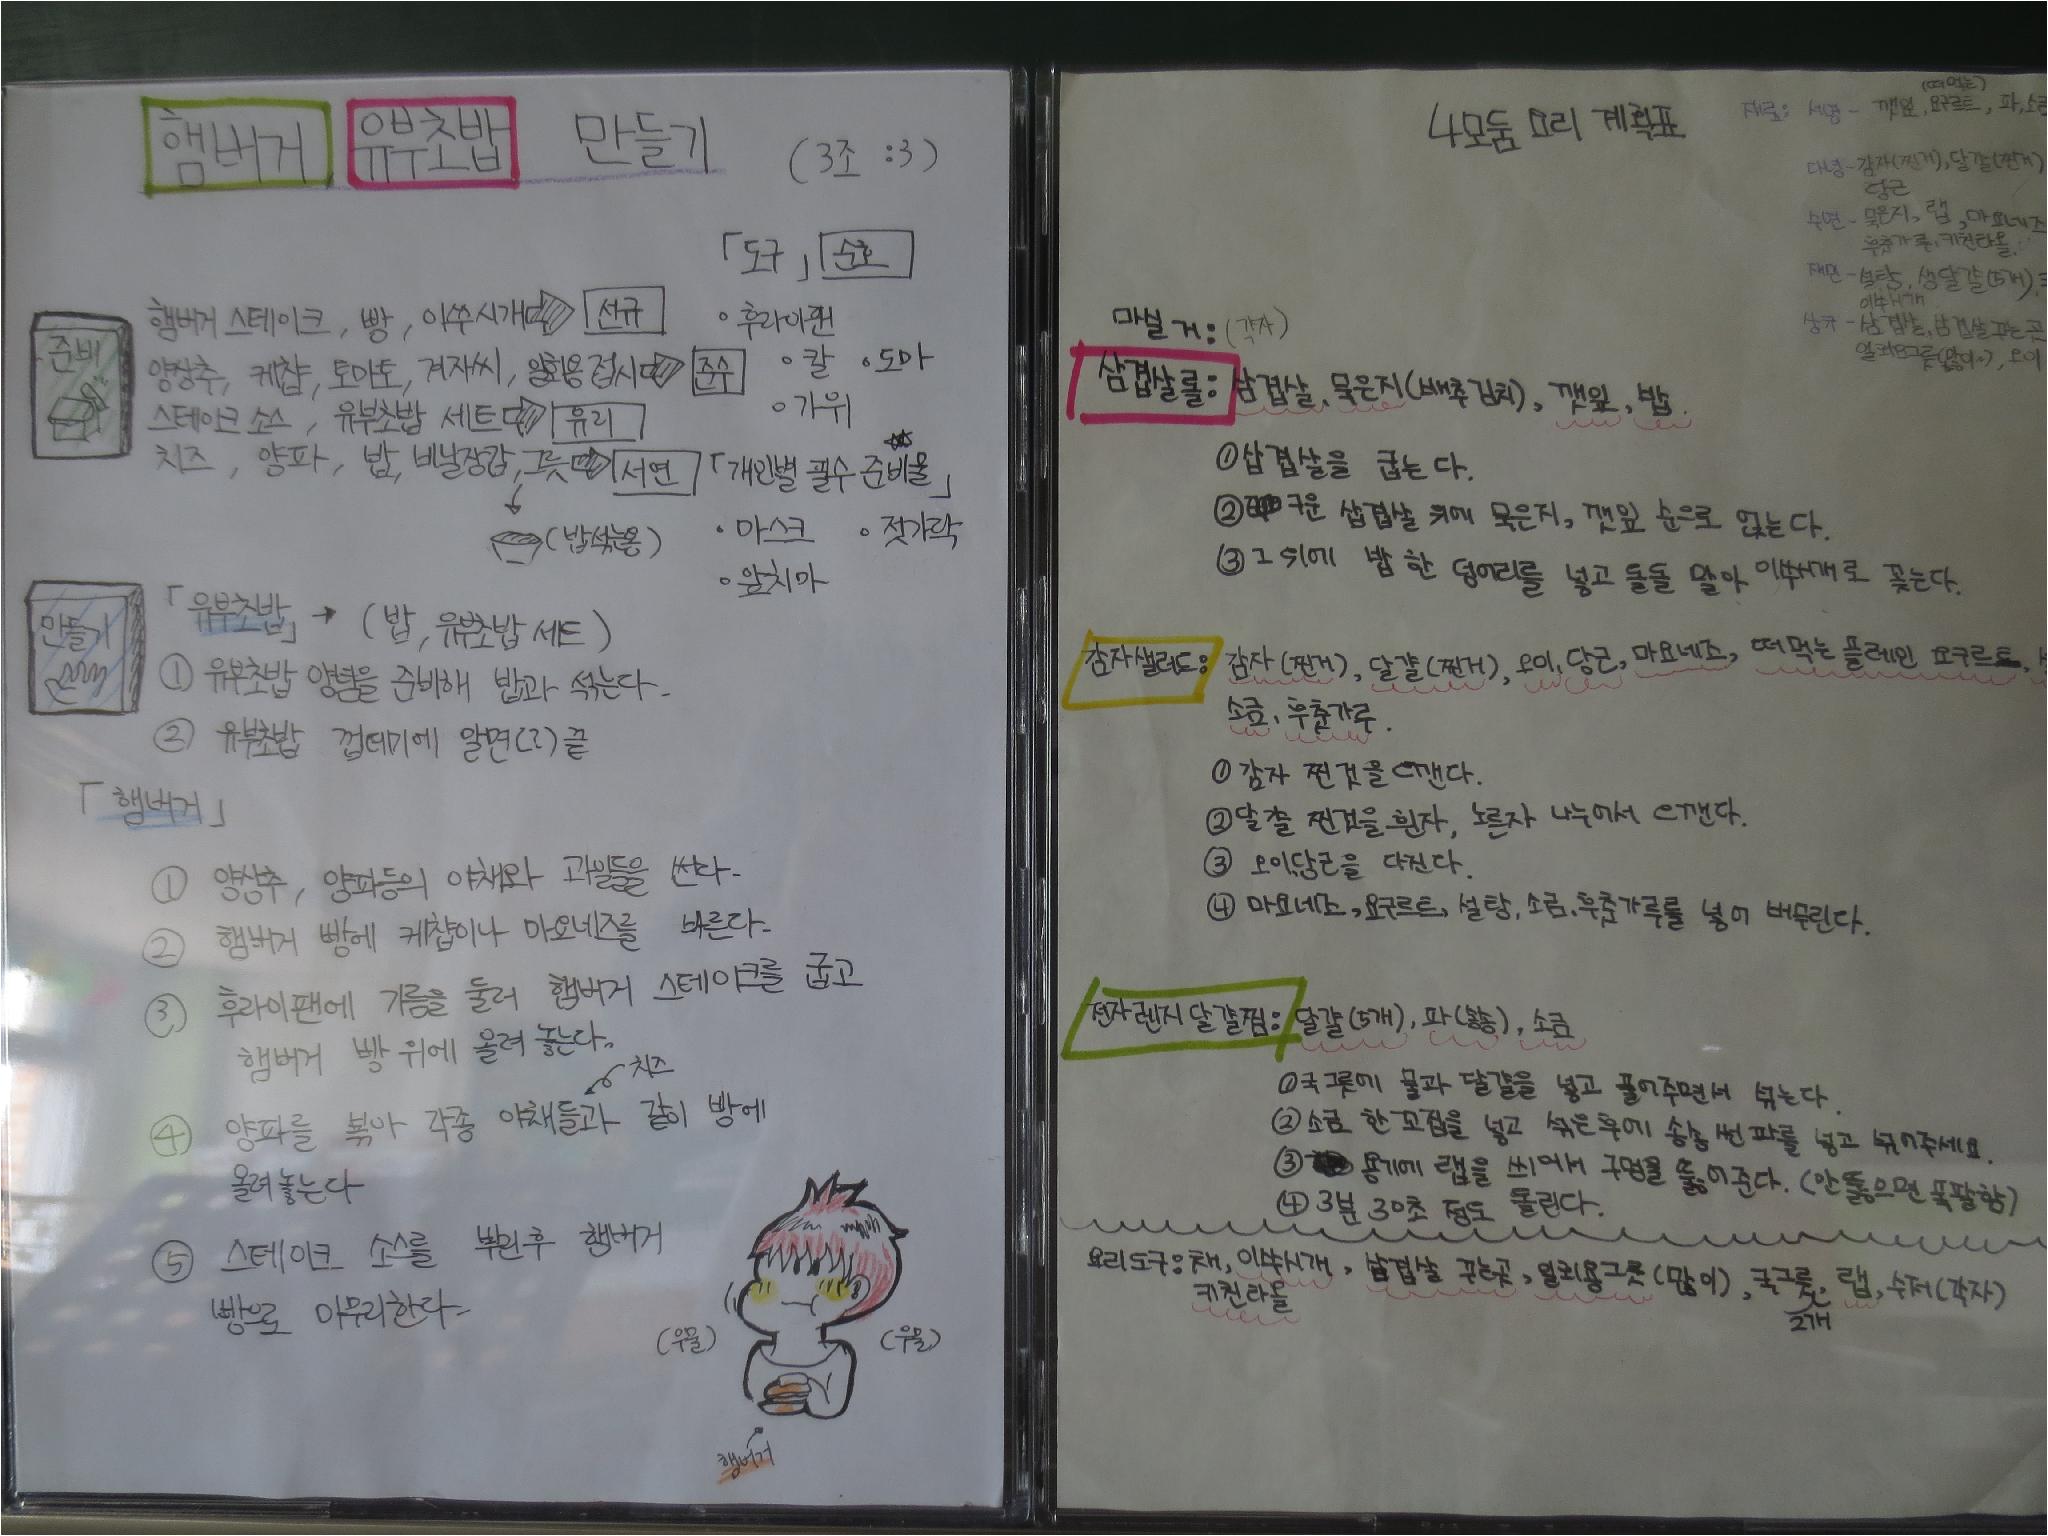 햄버거 유부초밥 만들기 (3조 :3)
「도구」 준호
• 후라이팬
• 칼 • 도마
• 가위
준비
햄버거 스테이크, 빵, 이쑤시개 선규
양상추, 케챱, 토마토, 겨자씨, 일회용 접시 준수
스테이크 소스, 유부초밥 세트 유리
치즈, 양파, 밥, 비닐장갑, 그릇 서연
(밥섞는용)
「개인별 필수 준비물」
• 마스크 • 젓가락
• 앞치마
만들기
「유부초밥」 → (밥, 유부초밥 세트)
① 유부초밥 양념을 준비해 밥과 섞는다.
② 유부초밥 껍데기에 말면(?) 끝
「햄버거」
① 양상추, 양파등의 야채와 과일들을 싼다.
② 햄버거 빵에 케챱이나 마요네즈를 바른다.
③ 후라이팬에 기름을 둘러 햄버거 스테이크를 굽고
햄버거 빵 위에 올려 놓는다.
치즈
④ 양파를 볶아 각종 야채들과 같이 빵에
올려놓는다
⑤ 스테이크 소스를 뿌린후 햄버거
빵으로 마무리한다.
(우물) (우물)
햄버거
4모둠 요리 계획표
(떠먹는)
재료: 서영 - 깻잎, 요구르트, 파, 소금
다녕 - 감자(찐거), 달걀(찐거)
당근
수면 - 묵은지, 랩, 마요네즈
후춧가루, 키친타올
재민 - 설탕, 생달걀(5개)
이쑤시개
상규 - 삼겹살, 삼겹살 꾸는곳
일회용그릇(많이), 오이
마실 거: (각자)
삼겹살롤: 삼겹살, 묵은지(배추김치), 깻잎, 밥.
① 삼겹살을 굽는다.
② 구운 삼겹살 위에 묵은지, 깻잎 순으로 얹는다.
③ 그 위에 밥 한 덩어리를 넣고 돌돌 말아 이쑤시개로 꽂는다.
감자샐러드: 감자(찐거), 달걀(찐거), 오이, 당근, 마요네즈, 떠먹는 플레인 요구르트,
소금, 후춧가루.
① 감자 찐것을 으깬다.
② 달걀 찐것을 흰자, 노른자 나누어서 으깬다.
③ 오이, 당근을 다진다.
④ 마요네즈, 요구르트, 설탕, 소금, 후춧가루를 넣어 버무린다.
전자렌지 달걀찜: 달걀(5개), 파(송송), 소금
① 국그릇에 물과 달걀을 넣고 풀어주면서 섞는다.
② 소금 한 꼬집을 넣고 섞은후에 송송 썬 파를 넣고 섞어주세요.
③ 용기에 랩을 씌어서 구멍을 뚫어준다. (안뚫으면 폭팔함)
④ 3분 30초 정도 돌린다.
요리도구: 채, 이쑤시개, 삼겹살 꾸는곳, 일회용그릇(많이), 국그릇, 랩, 수저(각자)
키친타올 2개